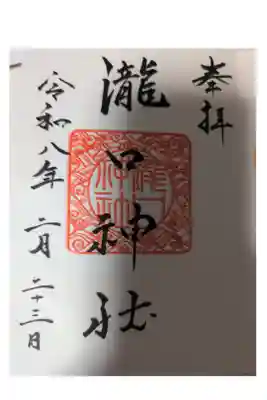 奉拝
瀧口神社
令和八年二月二十三日